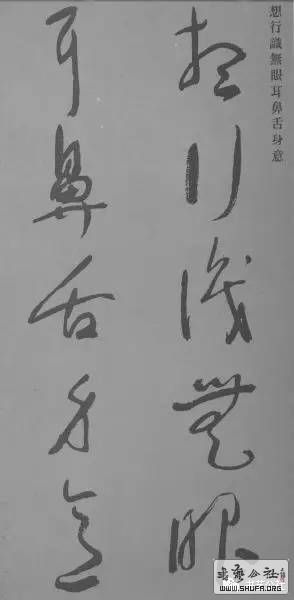 想行識無眼耳鼻舌身意
想行識無眼
耳鼻舌身意
書藝公社
WWW.SHUFA.ORG